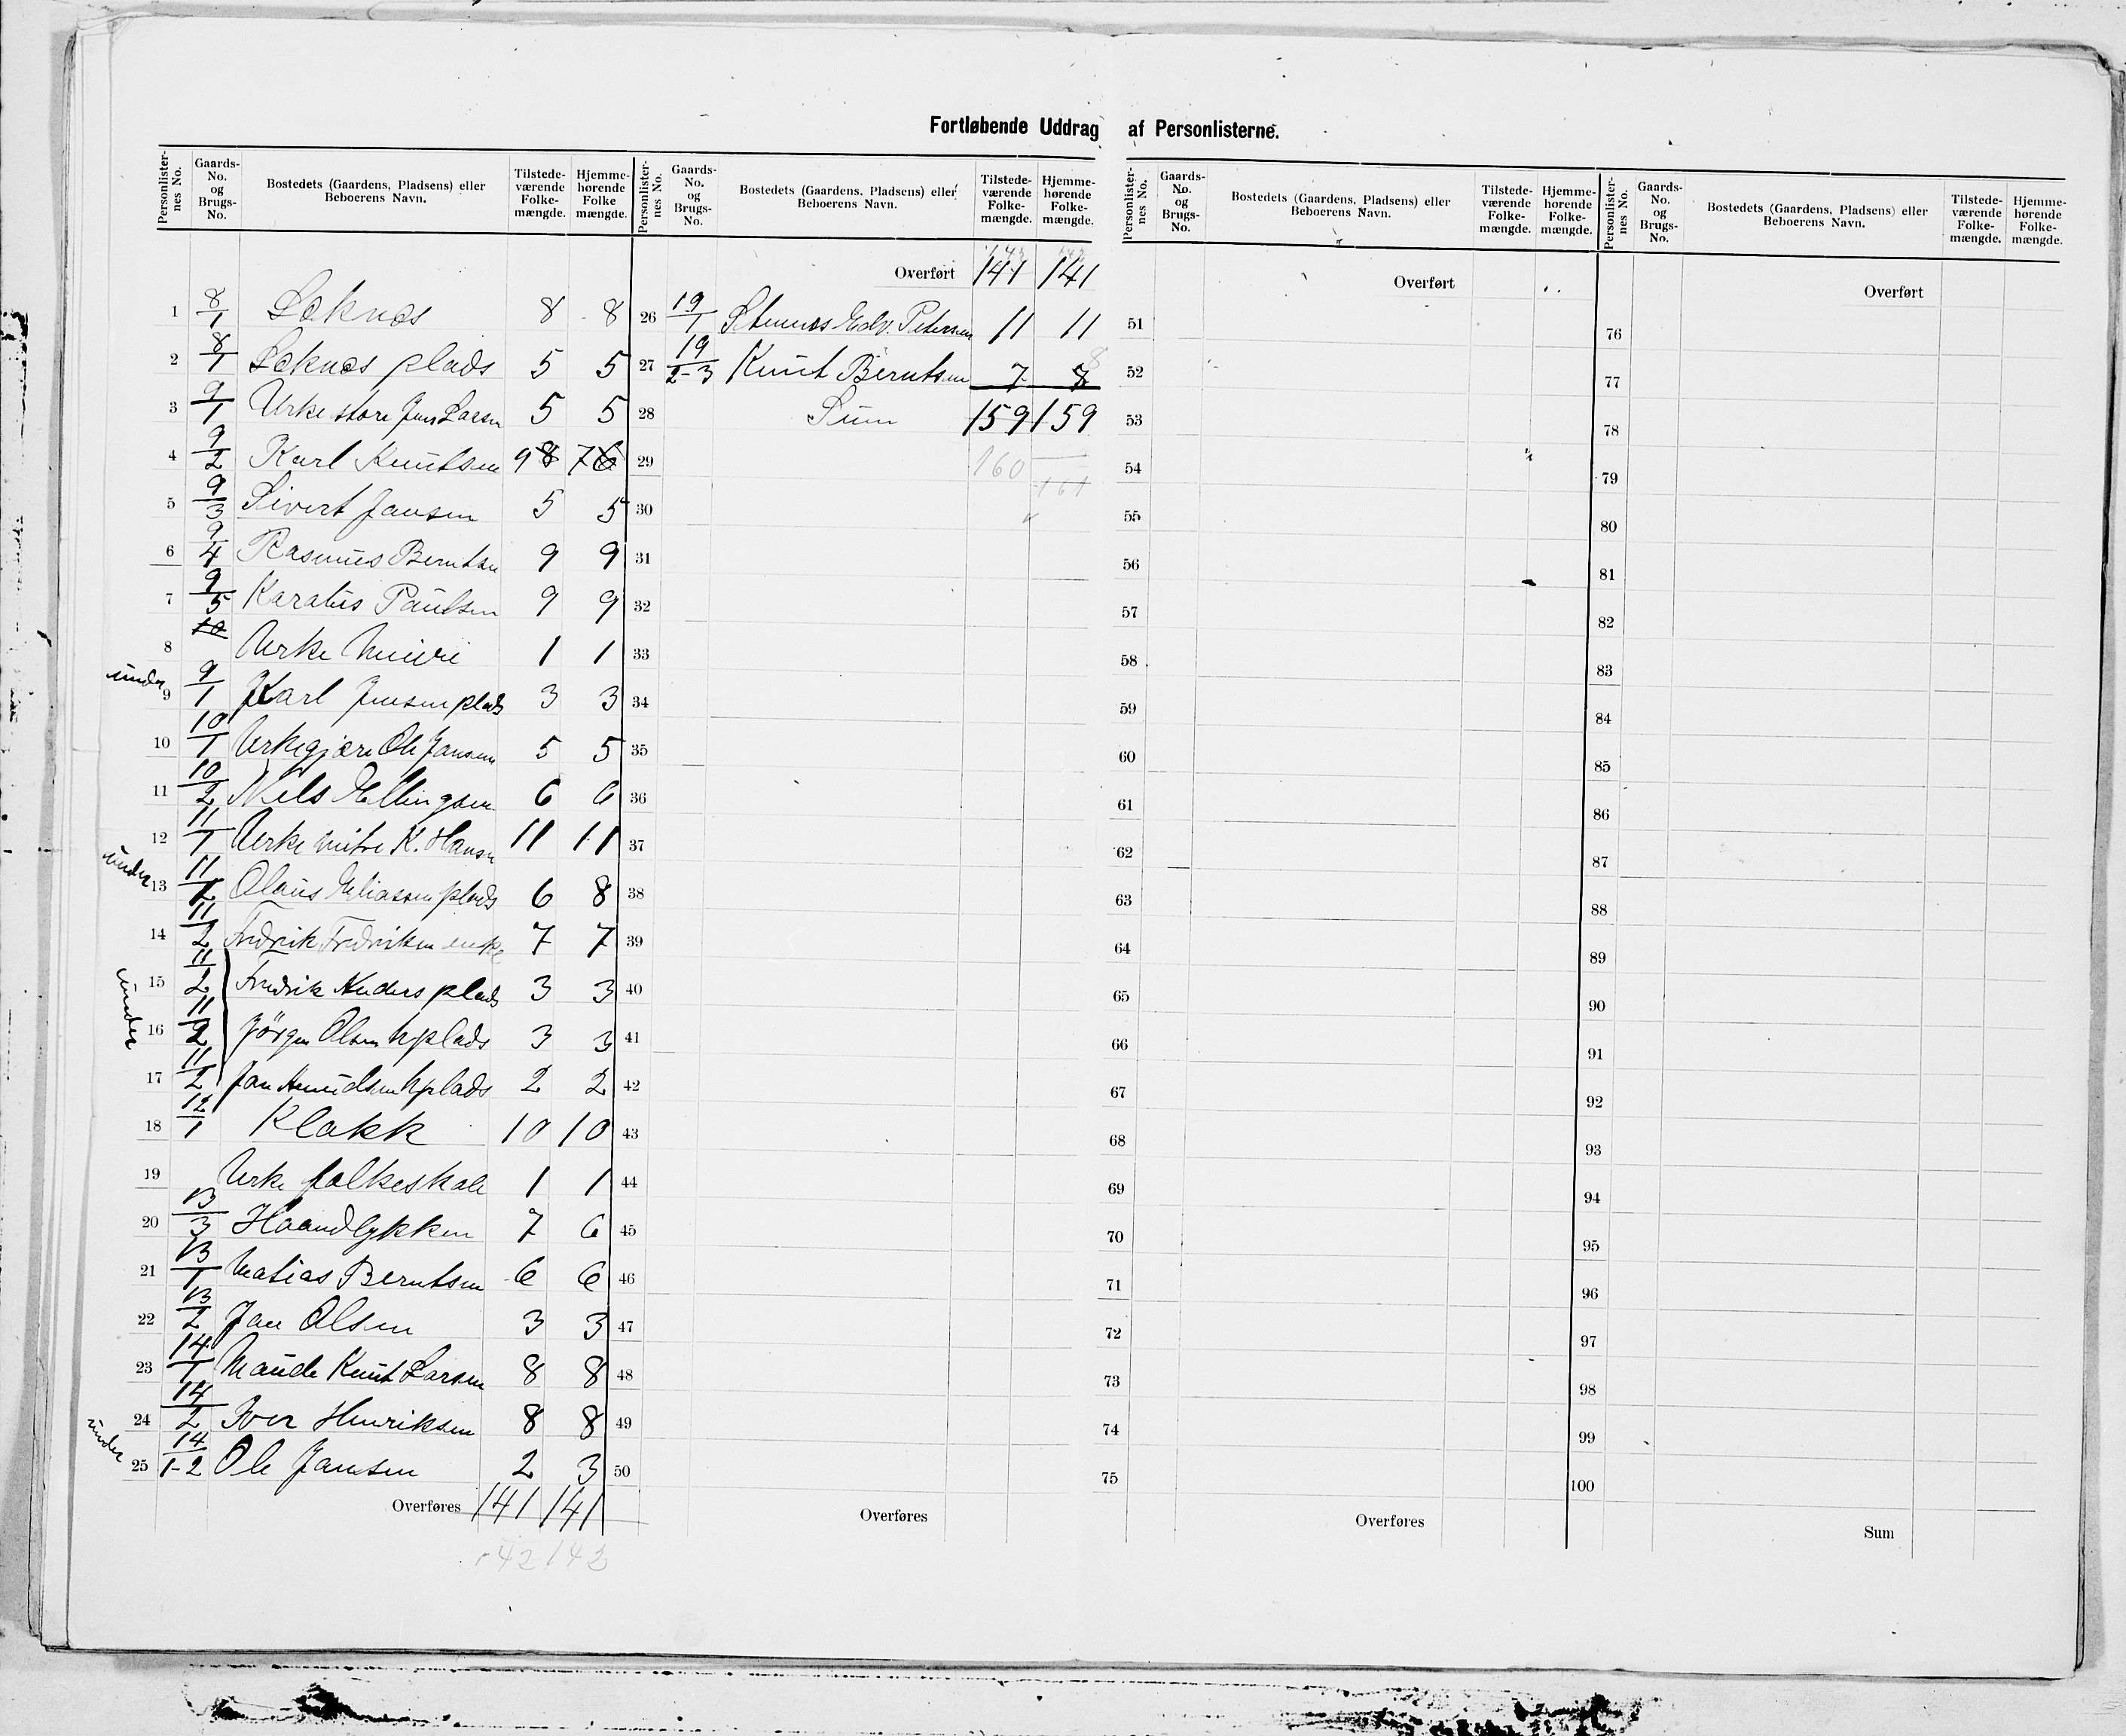 Fortløbende Uddrag af Personlisterne.
Personlister-nes No. Gaards-No. og Brugs-No. Bostedets (Gaardens, Pladsens) eller Beboerens Navn. Tilstede-værende Folke-mængde. Hjemme-hørende Folke mængde.
1 8/1 Leknes 8 8
2 8/1 Leknes plads 5 5
3 9/1 Urke store Jens Larsen 5 5
4 9/2 Karl Knutsen 9 8 7 6
5 9/3 Sivert Jansen 5 5
6 9/4 Rasmus Berntsen 9 9
7 9/5 Karalus Paulsen 9 9
8 10 Urke 1 1
under 9 9/1 Karl Jensen plads 3 3
10 10/1 Urkegjære Ole Jansen 5 5
11 10/2 Nils Ellingsen 6 6
12 11/1 Urke mitre K. Hansen 11 11
under 13 11/2 Olaus Eliassen plads 6 8
14 11/2 Fredrik Fredriksen enke 7 7
15 11/2 Fredrik Anders plads 3 3
under 16 11/2 Jörgen Olsen hplads 3 3
17 11/2 Jan Amundsen hplads 2 2
18 12/1 Klokk 10 10
19 Urke folkeskole 1 1
20 13/3 Haandlykken 7 6
21 13/1 Matias Berntsen 6 6
22 13/2 Jan Olsen 3 3
23 14/1 Maude Knut Larsen 8 8
24 14/2 Iver Henriksen 8 8
under 25 14/1-2 Ole Jansen 2 3
Overføres 141 141
142 142
Personlister-nes No. Gaards-No. og Brugs-No. Bostedets (Gaardens, Pladsens) eller Beboerens Navn. Tilstede-værende Folke-mængde. Hjemme-hørende Folke-mængde.
Overført 141 141
26 19/1 Stennes Edv. Petersen 11 11
27 19/2-3 Knut Berntsen 7 7 8
28 Sum 159 159
29 160
161
30
31
32
33
34
35
36
37
38
39
40
41
42
43
44
45
46
47
48
49
50
Overføres
Personlister-nes No. Gaards-No. og Brugs-No. Bostedets (Gaardens, Pladsens) eller Beboerens Navn. Tilstede-værende Folke-mængde. Hjemme-hørende Folke-mængde.
Overført
51
52
53
54
55
56
57
58
59
60
61
62
63
64
65
66
67
68
69
70
71
72
73
74
75
Overføres
Personlister-nes No. Gaards-No. og Brugs-No. Bostedets (Gaardens, Pladsens) eller Beboerens Navn. Tilstede-værende Folke-mængde. Hjemme-hørende Folke-mængde.
Overført
76
77
78
79
80
81
82
83
84
85
86
87
88
89
90
91
92
93
94
95
96
97
98
99
100
Sum